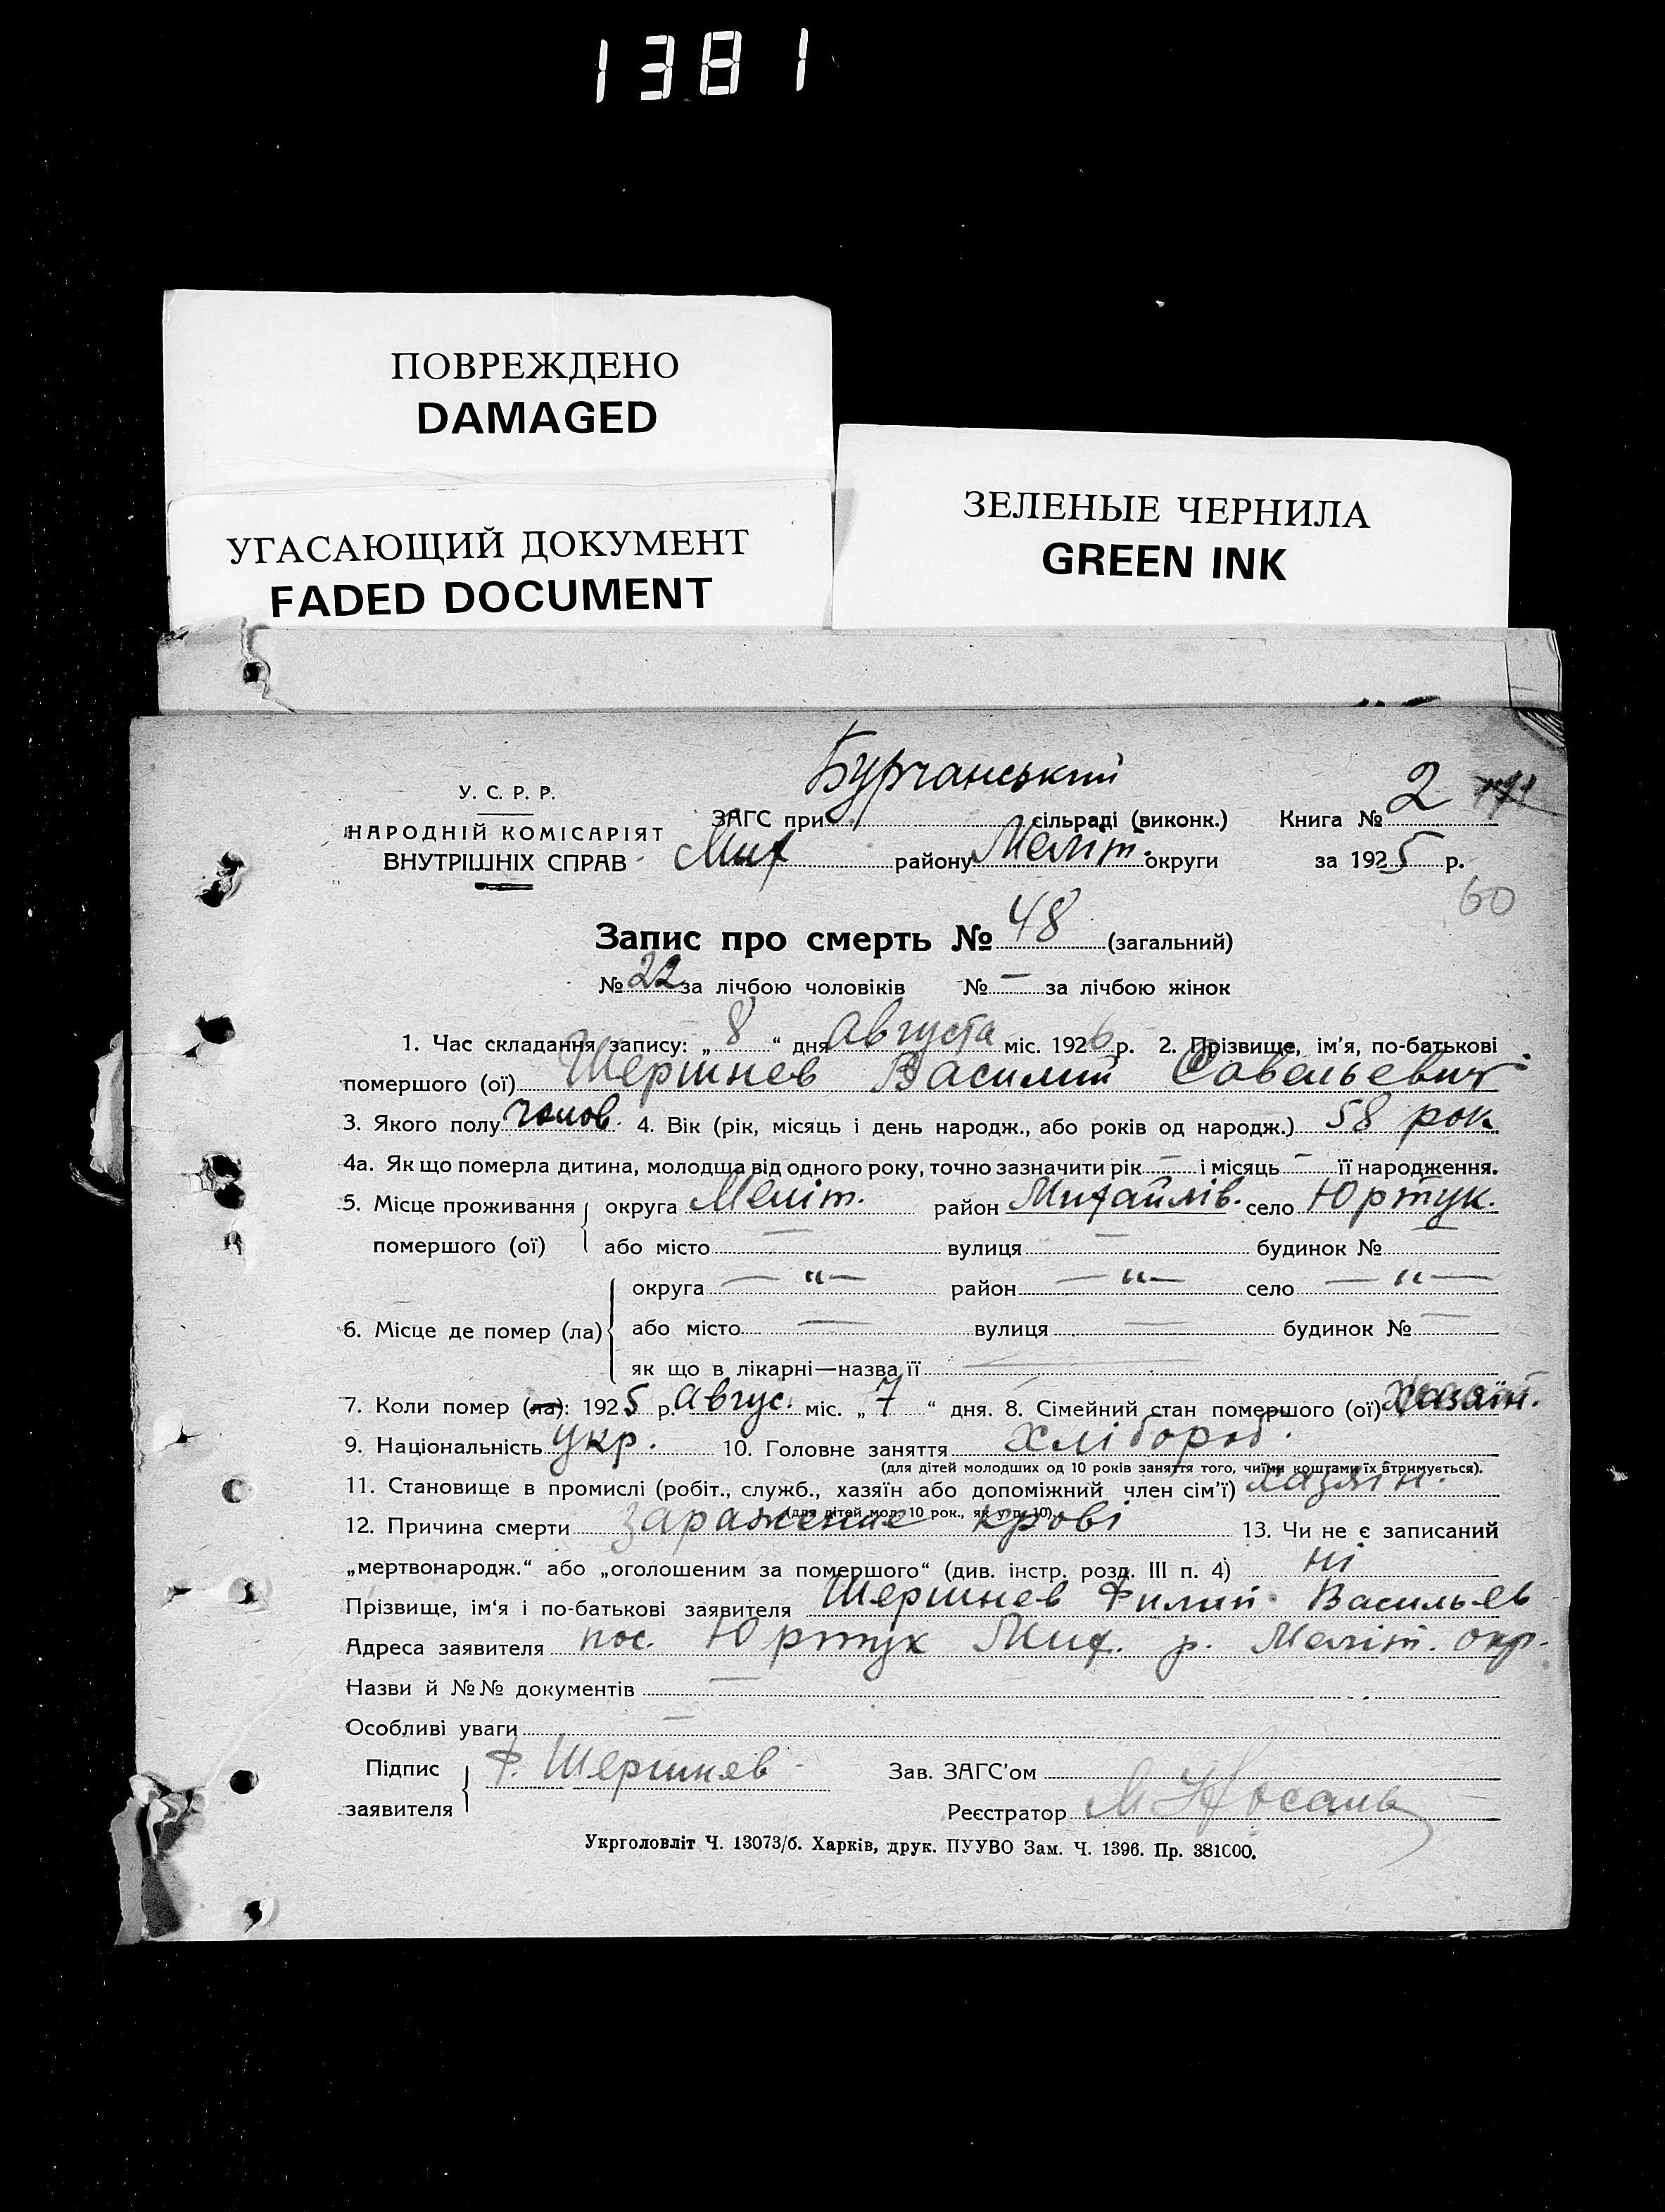 1381
ПОВРЕЖДЕНО
DAMAGED
УГАСАЮЩИЙ ДОКУМЕНТ
FADED DOCUMENT
ЗЕЛЕНЫЕ ЧЕРНИЛА
GREEN INK
У. С. Р. Р.
НАРОДНІЙ КОМІСАРІЯТ
ВНУТРІШНІХ СПРАВ
ЗАГС при Бурчанський сільраді (виконк.) Книга № 2
Мих району Меліт. округи за 1925 р.
60
Запис про смерть № 48 (загальний)
№ 22 за лічбою чоловіків № — за лічбою жінок
1. Час складання запису: „ 8 “ дня Августа міс. 1926 р. 2. Прізвище, ім’я, по-батькові
помершого (ої) Шершнев Василий Савельевич
3. Якого полу чолов. 4. Вік (рік, місяць і день народж., або років од народж.) 58 рок
4а. Як що померла дитина, молодща від одного року, точно зазначити рік — і місяць — її народження.
5. Місце проживання помершого (ої) округа Меліт. район Михайлів. село Юртук.
або місто — вулиця — будинок № —
6. Місце де помер (ла) округа — “ — район — “ — село — “ —
або місто — вулиця — будинок № —
як що в лікарні—назва її —
7. Коли помер (ла): 1925 р. Авгус. міс. „ 7 “ дня. 8. Сімейний стан помершого (ої) Хазяїн.
9. Національність Укр. 10. Головне заняття Хлібороб.
(для дітей молодших од 10 років заняття того, чиїми коштами їх втримується).
11. Становище в промислі (робіт., служб., хазяїн або допоміжний член сім’ї) хазяїн.
(для дітей мол. 10 рок., як у п. 10)
12. Причина смерти заражение крові 13. Чи не є записаний
„мертвонародж.“ або „оголошеним за помершого“ (див. інстр. розд. III п. 4) ні
Прізвище, ім‘я і по-батькові заявителя Шершнев Филип Васильев
Адреса заявителя пос. Юртук Мих. р. Меліт. окр.
Назви й №№ документів —
Особливі уваги —
Підпис заявителя Ф. Шершнев Зав. ЗАГС’ом
Реєстратор М Носань
Укрголовліт Ч. 13073/б. Харків, друк. ПУУВО Зам. Ч. 1396. Пр. 381000.